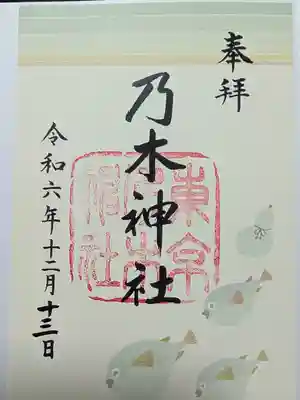 奉拝
乃木神社
東京
神社
令和六年十二月十三日